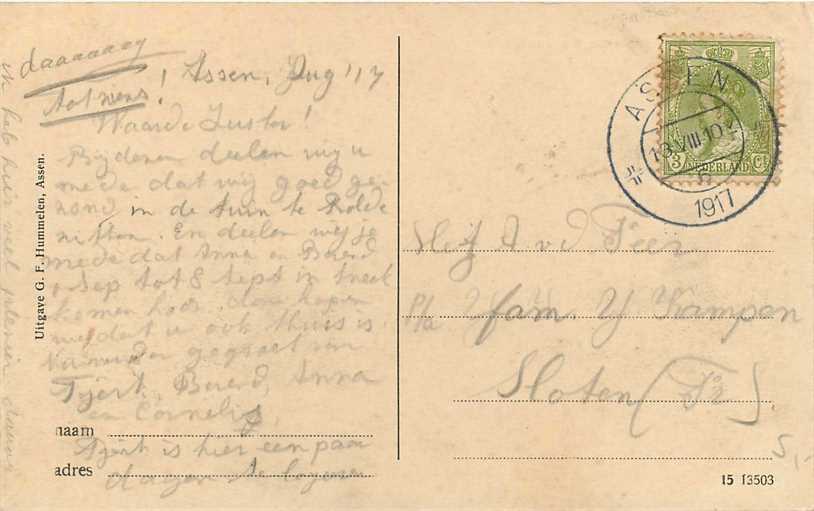 daaaaaag
tot ziens!
Assen, Aug '17
Waarde Zuster!
Bij dezen deelen wij u
mede dat wij goed ge-
zond in de tuin te Rolde
zitten. En deelen wij je
mede dat Anna en Berend
1 Sep tot 8 Sept in Sneek
komen hoor. dan hopen
wij dat u ook thuis is.
Verder gegroet van
Tjert, Berend, Anna
en Cornelis
Tjert is hier een paar
dagen te logeren
ik heb hier veel plezier
Uitgave G. F. Hummelen, Assen.
naam
adres
ASSEN
13 VIII 10-
1917
3 NEDERLAND Ct
Mej A vd Feer
P/a fam. Y Kampen
Sloten (Fr).
5,-
15 13503